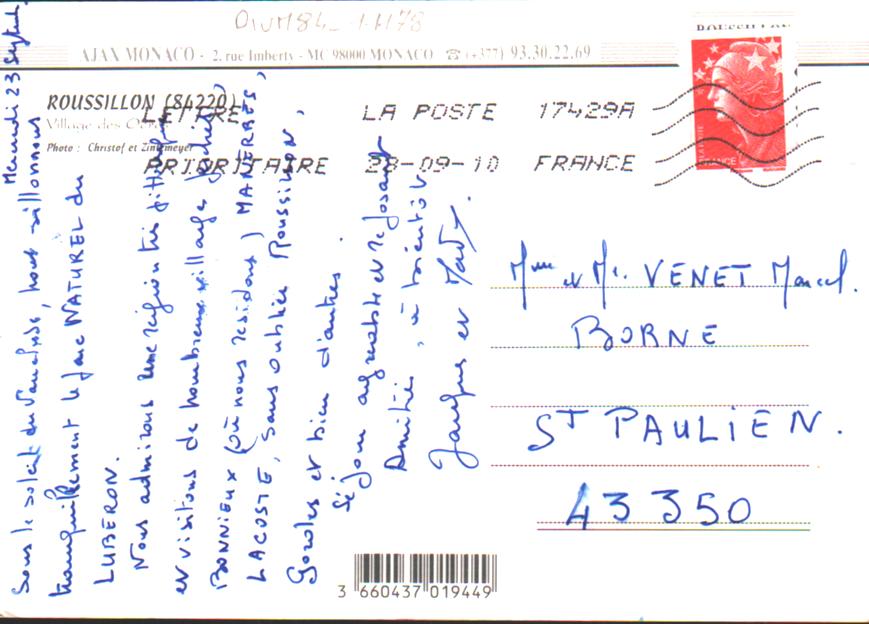 DIVM84-1-1178
AJAX MONACO - 2, rue Imberts - MC 98000 MONACO ☎ (+377) 93.30.22.69
ROUSSILLON (84220)
Village des
Photo : Christof et Zinzmeyer
LETTRE
PRIORITAIRE
LA POSTE 17429A
28-09-10 FRANCE
FRANCE
Mme et Mr. VENET Marcel.
BORNE
ST PAULIEN.
43 350
23
Sous le soleil du Vaucluse, nous sillonnons
tranquillement le parc NATUREL du
LUBERON.
Nous admirons une région très
et visitons de nombreux villages
BONNIEUX (où nous résidons) MANERBES,
LACOSTE, sans oublier Roussillon,
Gordes et bien d'autres.
Séjour agréable et reposant
Amitiés, à bientôt
Jacques et
3 660437 019449